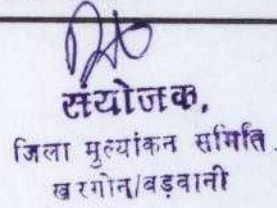 संयोजक,
जिला मुल्यांकन समिति
खरगोन/बड़वानी